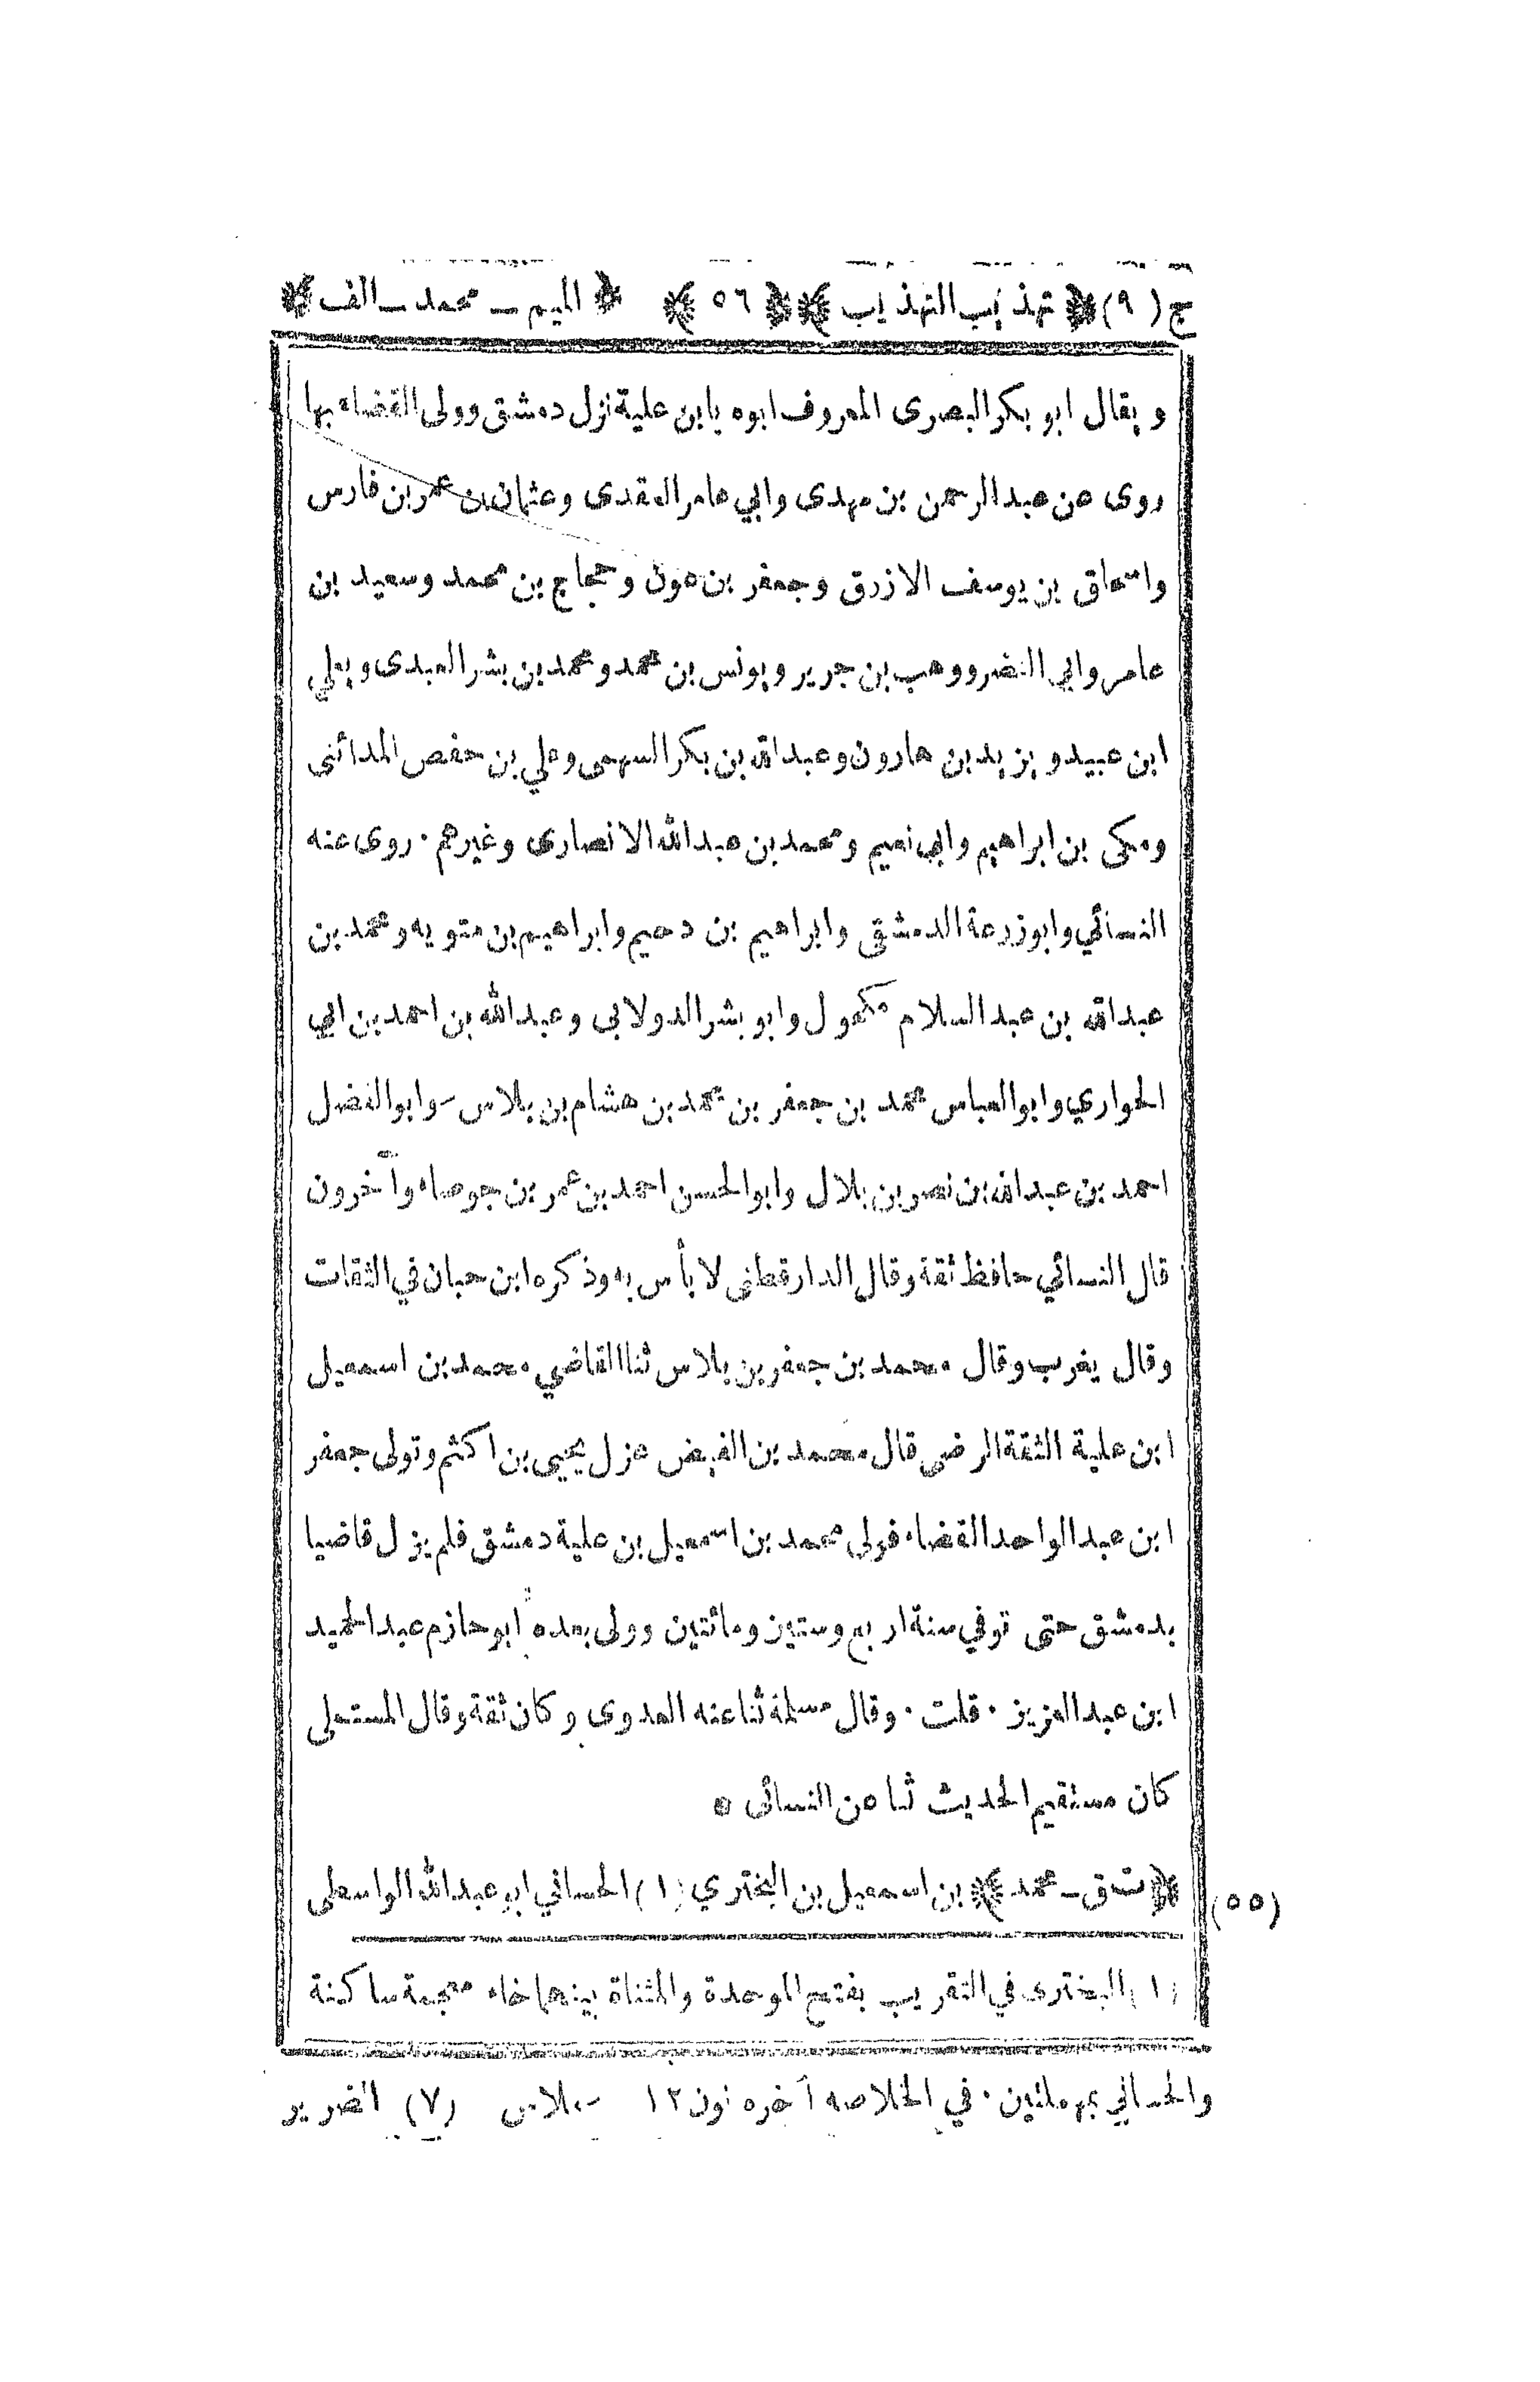 ج (٩) ﴿ تهذيب التهذيب ﴾ ﴿ ٥٦ ﴾ ﴿ الميم ـ محمد ـ الف ﴾
و يقال ابو بكر البصرى المعروف ابوه بابن علية نزل دمشق وولى القضاء بها
روى عن عبد الرحمن بن مهدى وابي عامر العقدى وعثمان بن عمر بن فارس
واسحاق بن يوسف الازرق وجعفر بن عون وحجاج بن محمد وسعيد بن
عامر وابي النضر ووهب بن جرير ويونس بن محمد ومحمد بن بشر العبدى ويعلي
ابن عبيد ويزيد بن هارون وعبد الله بن بكر السهمى وعلي بن حفص المدائنى
ومكى بن ابراهيم وابي نعيم ومحمد بن عبد الله الانصارى وغيرهم . روى عنه
النسائي وابو زرعة الدمشقى وابراهيم بن دحيم وابراهيم بن متويه ومحمد بن
عبد الله بن عبد السلام مكحول وابو بشر الدولابي وعبد الله بن احمد بن ابي
الحواري وابو العباس محمد بن جعفر بن محمد بن هشام بن ملاس وابو الفضل
احمد بن عبد الله بن نصر بن هلال وابو الحسن احمد بن عمر بن جوصاء وآخرون
قال النسائي حافظ ثقة وقال الدارقطنى لا بأس به وذكره ابن حبان في الثقات
وقال يغرب وقال محمد بن جعفر بن ملاس ثنا القاضي محمد بن اسمعيل
ابن علية الثقة الرضى قال محمد بن الفيض عزل يحيى بن اكثم وتولى جعفر
ابن عبد الواحد القضاء فولى محمد بن اسمعيل بن علية دمشق فلم يزل قاضيا
بدمشق حتى توفي سنة اربع وستين ومائتين وولى بعده ابو حازم عبد الحميد
ابن عبد العزيز . قلت . وقال مسلمة ثنا عنه العدوى وكان ثقة وقال المستملى
كان مستقيم الحديث ثنا عن النسائى ٥
(٥٥) ﴿ ت ق ـ محمد ﴾ بن اسمعيل بن البختري (١) الحساني ابو عبد الله الواسطى
(١) البخترى في التقريب بفتح الموحدة والمثناة بينهما خاء معجمة ساكنة
والحساني بمهملتين . في الخلاصه آخره نون ١٢ (٧) الضرير